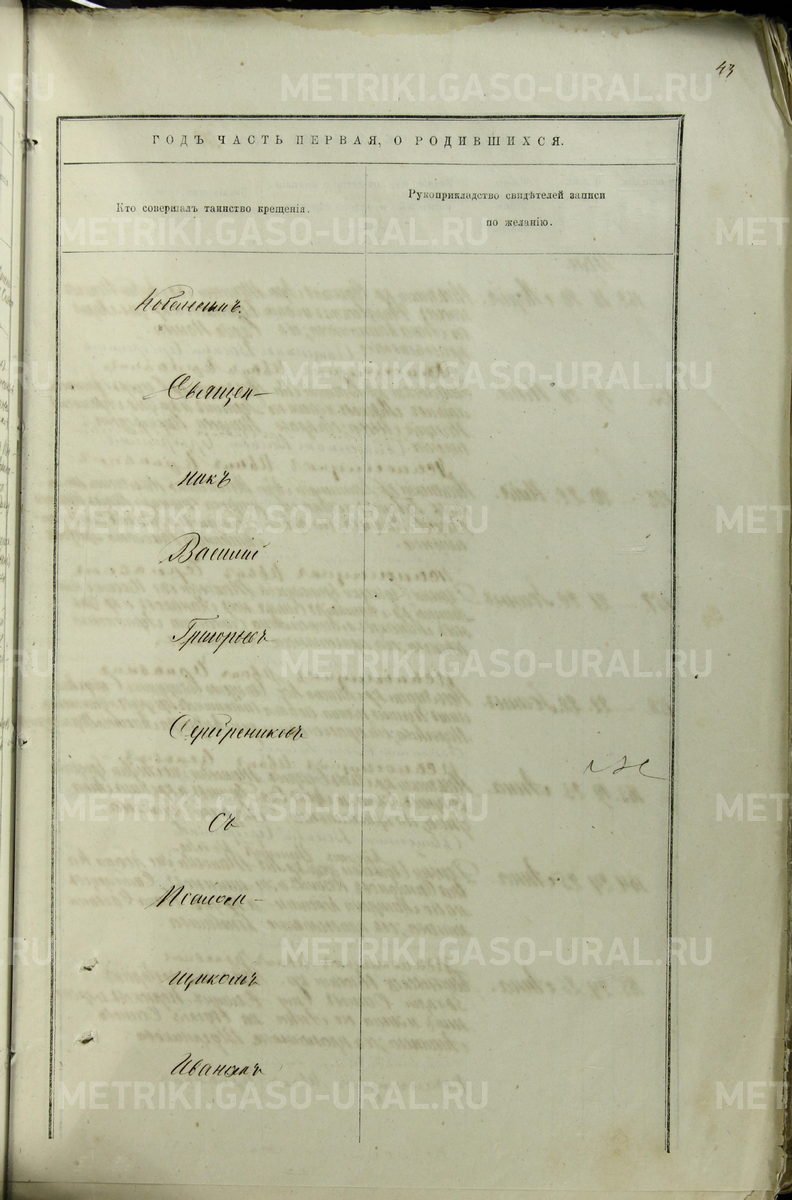 43
ГОДЪ ЧАСТЬ ПЕРВАЯ, О РОДИВШИХСЯ.
Кто совершалъ таинство крещенія.
Рукоприкладство свидѣтелей записи
по желанію.
Священ-
никъ
Василій
Григорьевъ
Серебрениковъ
съ
Псалом-
щикомъ
Иваномъ
METRIKI.GASO-URAL.RU